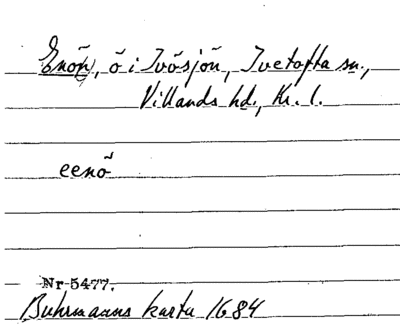 Enön, ö i Ivösjön, Ivetofta sn.,
Villands hd., Kr. l.
eenö
Nr 5477.
Buhrmanns karta 1684